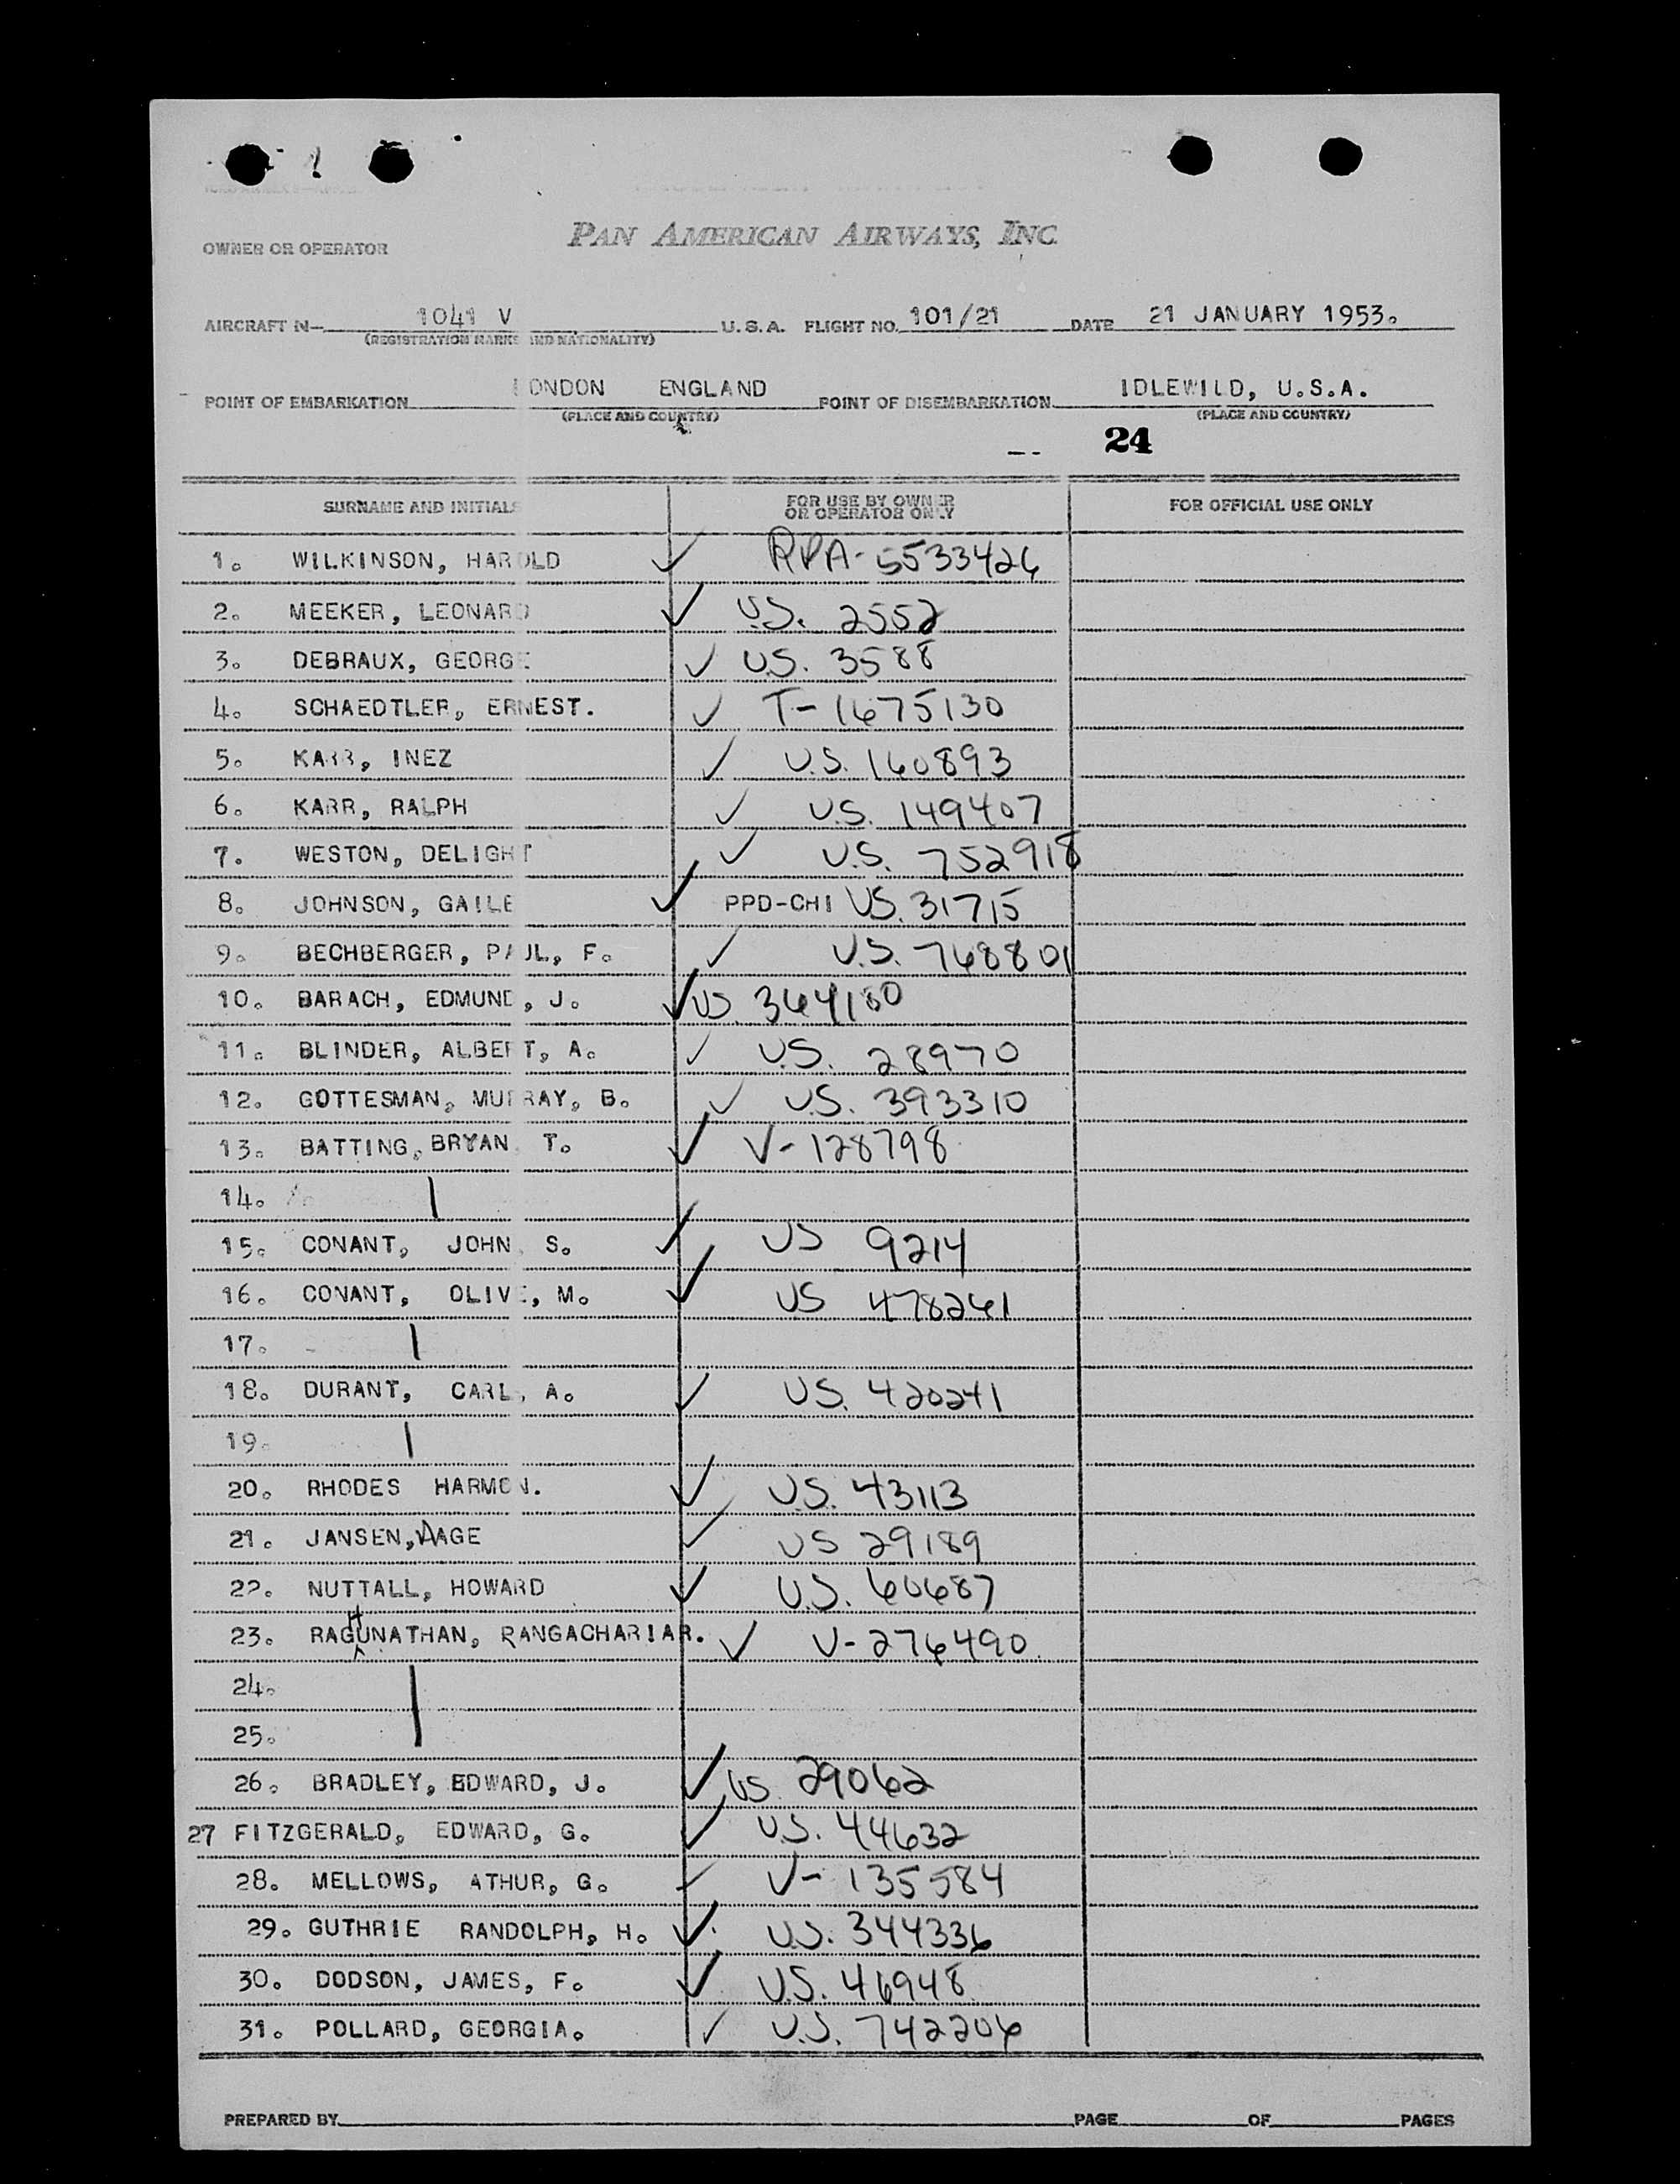 PAN AMERICAN AIRWAYS, INC.
OWNER OR OPERATOR
AIRCRAFT N— 1041 V U.S.A. FLIGHT NO. 101/21 DATE 21 JANUARY 1953.
(REGISTRATION MARKS AND NATIONALITY)
POINT OF EMBARKATION LONDON ENGLAND POINT OF DISEMBARKATION IDLEWILD, U.S.A.
(PLACE AND COUNTRY) (PLACE AND COUNTRY)
24
SURNAME AND INITIALS FOR USE BY OWNER OR OPERATOR ONLY FOR OFFICIAL USE ONLY
1. WILKINSON, HAROLD ✓ RPA-5533426
2. MEEKER, LEONARD ✓ U.S. 2552
3. DEBRAUX, GEORGE ✓ U.S. 3588
4. SCHAEDTLER, ERNEST. ✓ T-1675130
5. KARR, INEZ ✓ U.S. 160893
6. KARR, RALPH ✓ U.S. 149407
7. WESTON, DELIGHT ✓ U.S. 752918
8. JOHNSON, GAILE ✓ PPD-CHI US. 31715
9. BECHBERGER, PAUL, F. ✓ U.S. 768801
10. BARACH, EDMUND, J. ✓ US 364180
11. BLINDER, ALBERT, A. ✓ U.S. 28970
12. GOTTESMAN, MURRAY, B. ✓ U.S. 393310
13. BATTING, BRYAN T. ✓ V-128798
14.
15. CONANT, JOHN S. ✓ US 9214
16. CONANT, OLIVE, M. ✓ US 478261
17.
18. DURANT, CARL, A. ✓ US. 420241
19.
20. RHODES HARMON. ✓ U.S. 43113
21. JANSEN, AAGE ✓ US 29189
22. NUTTALL, HOWARD ✓ U.S. 60687
23. RAGHUNATHAN, RANGACHARIAR. ✓ V-276490
24.
25.
26. BRADLEY, EDWARD, J. ✓ US 29062
27 FITZGERALD, EDWARD, G. ✓ U.S. 44632
28. MELLOWS, ATHUR, G. ✓ V-135584
29. GUTHRIE RANDOLPH, H. ✓ U.S. 344336
30. DODSON, JAMES, F. ✓ U.S. 46948
31. POLLARD, GEORGIA. ✓ U.S. 742206
PREPARED BY PAGE OF PAGES